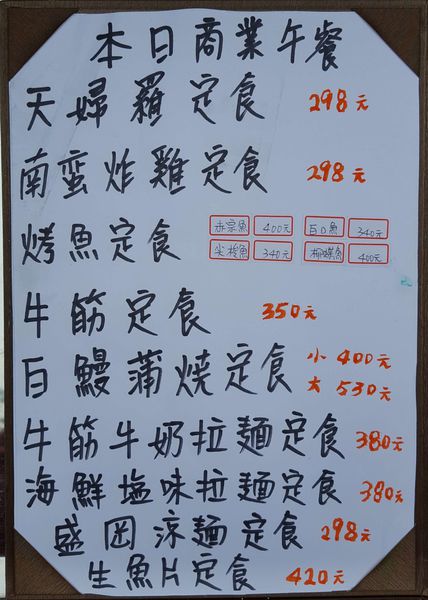 本日商業午餐
天婦羅定食 298元
南蛮炸雞定食 298元
烤魚定食 赤宗魚 400元 百口魚 340元
尖梭魚 340元 蝴蝶魚 400元
牛筋定食 350元
白鰻蒲燒定食 小400元
大530元
牛筋牛奶拉麵定食 380元
海鮮塩味拉麵定食 380元
盛岡涼麵定食 298元
生魚片定食 420元